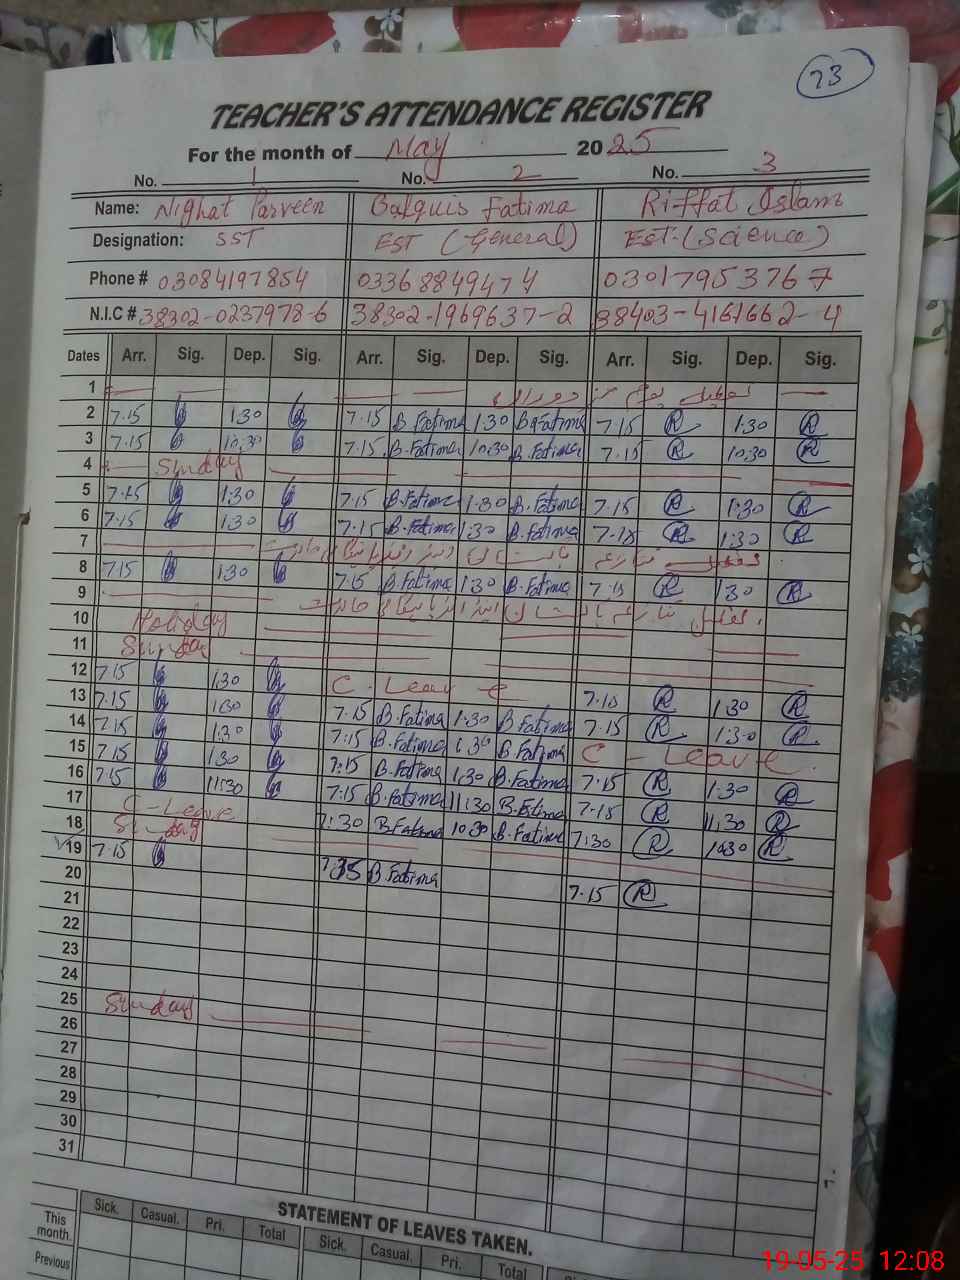 23
TEACHER'S ATTENDANCE REGISTER
For the month of May 2025
No. 1 No. 2 No. 3
Name: Nighat Parveen Balquis Fatima Riffat Islam
Designation: SST EST (General) EST (Science)
Phone # 03084197854 03368849474 03017953767
N.I.C # 38302-0237978-6 38302-1969637-2 38403-4161662-4
Dates Arr. Sig. Dep. Sig. Arr. Sig. Dep. Sig. Arr. Sig. Dep. Sig.
1 تعطیل یوم مزدوراں
2 7.15 1.30 7.15 B.Fatima 1.30 B.Fatima 7.15 R 1.30 R
3 7.15 10.30 7.15 B.Fatima 10.30 B.Fatima 7.15 R 10.30 R
4 Sunday
5 7.15 1.30 7.15 B.Fatima 1.30 B.Fatima 7.15 R 1:30 R
6 7.15 1.30 7.15 B.Fatima 1.30 B.Fatima 7.15 R 1:30 R
7
8 7.15 1.30 7.15 B.Fatima 1.30 B.Fatima 7.15 R 1.30 R
9
10 Holiday
11 Sunday
12 7.15 1.30 C-Leave 7.15 R 1.30 R
13 7.15 1.30 7.15 B.Fatima 1.30 B.Fatima 7.15 R 1.30 R
14 7.15 1.30 7.15 B.Fatima 1.30 B.Fatima C-Leave
15 7.15 1.30 7.15 B.Fatima 1.30 B.Fatima 7.15 R 1.30 R
16 7.15 11:30 7.15 B.Fatima 11:30 B.Fatima 7.15 R 11:30 R
17 C-Leave 7:30 B.Fatima 10:30 B.Fatima 7:30 R 10:30 R
18 Sunday
19 7.15 7:35 B.Fatima 7.15 R
20
21
22
23
24
25 Sunday
26
27
28
29
30
31
STATEMENT OF LEAVES TAKEN.
Sick. Casual. Pri. Total Sick. Casual. Pri. Total
This month.
Previous
19-05-25 12:08